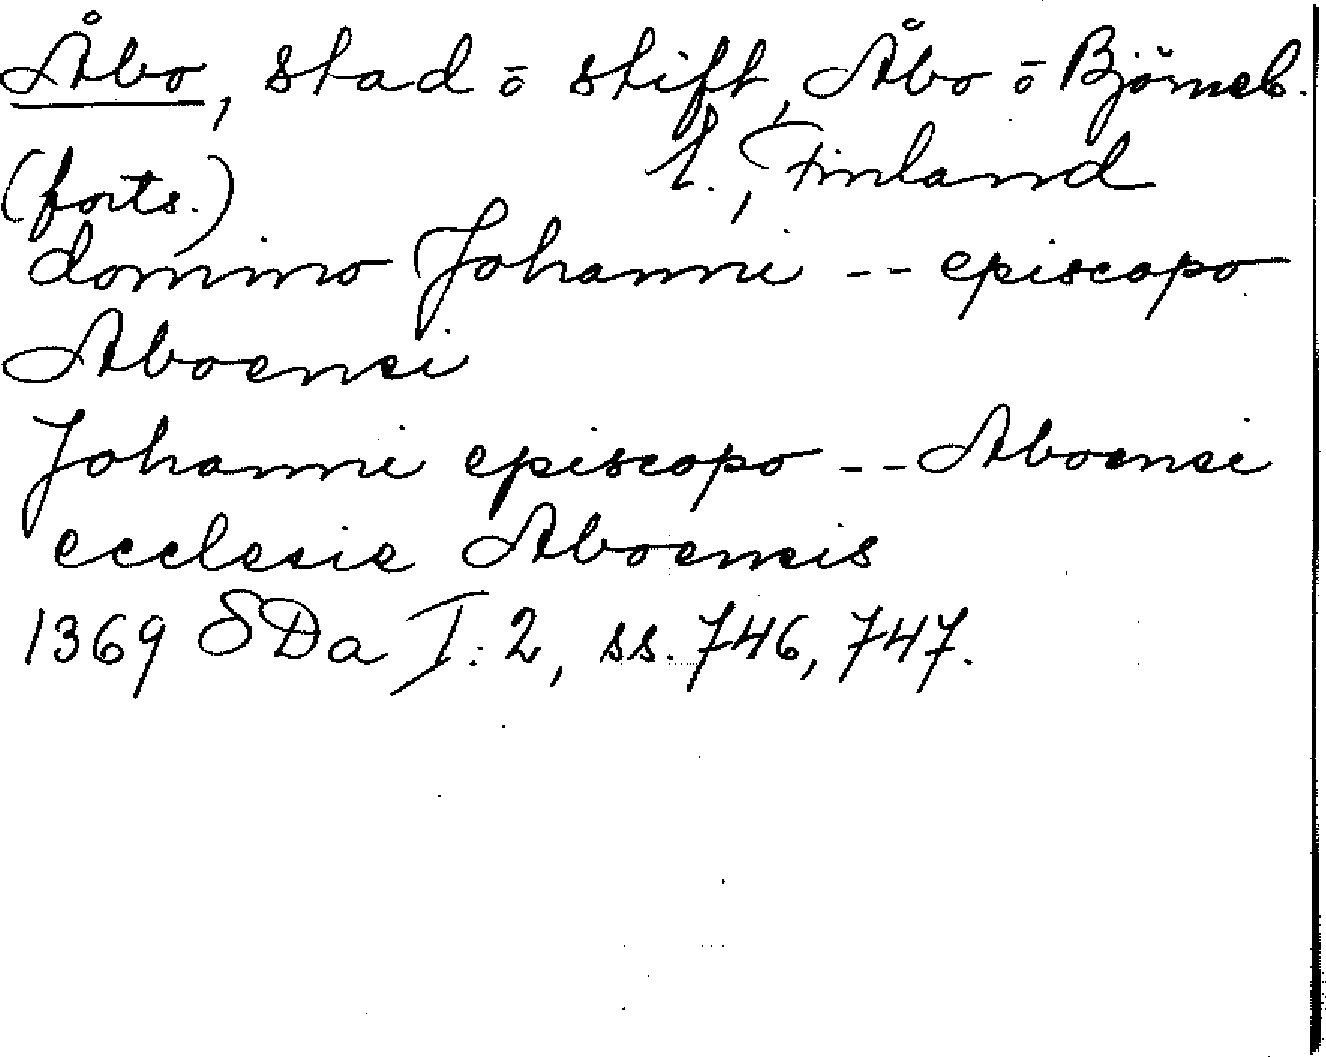 Åbo, stad ō stift, Åbo ō Björneb.
l., Finland
(forts.)
domino Johanni -- episcopo
Aboensi
Johanni episcopo -- Aboensi
ecclesie Aboensis
1369 SDa I:2, ss. 746, 747.